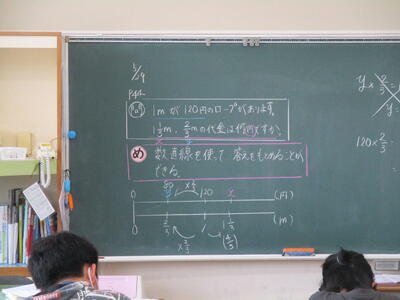 5/9
P42
P.49 1mが120円のロープがあります。
1 1/3m、2/3mの代金は何円ですか。
め 数直線を使って答えをもとめることが
できる。
80 × 2/3
0 120 x (円)
0 2/3 1 1 1/3 (m)
× 2/3 (4/3)
y × 2/3
y =
120 × 2/3
=